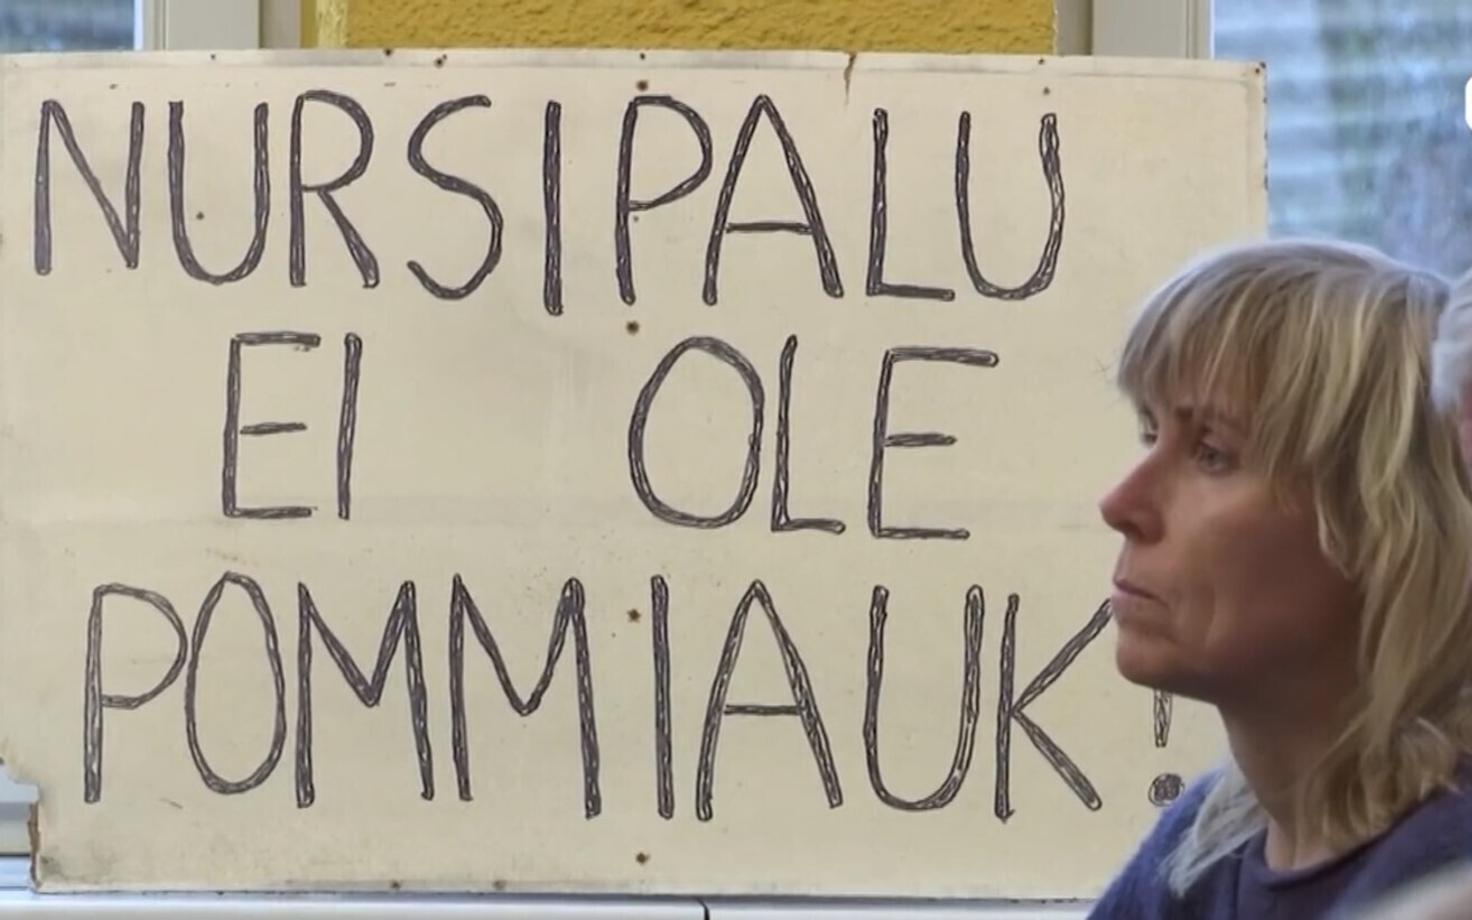 NURSIPALU
EI OLE
POMMIAUK!